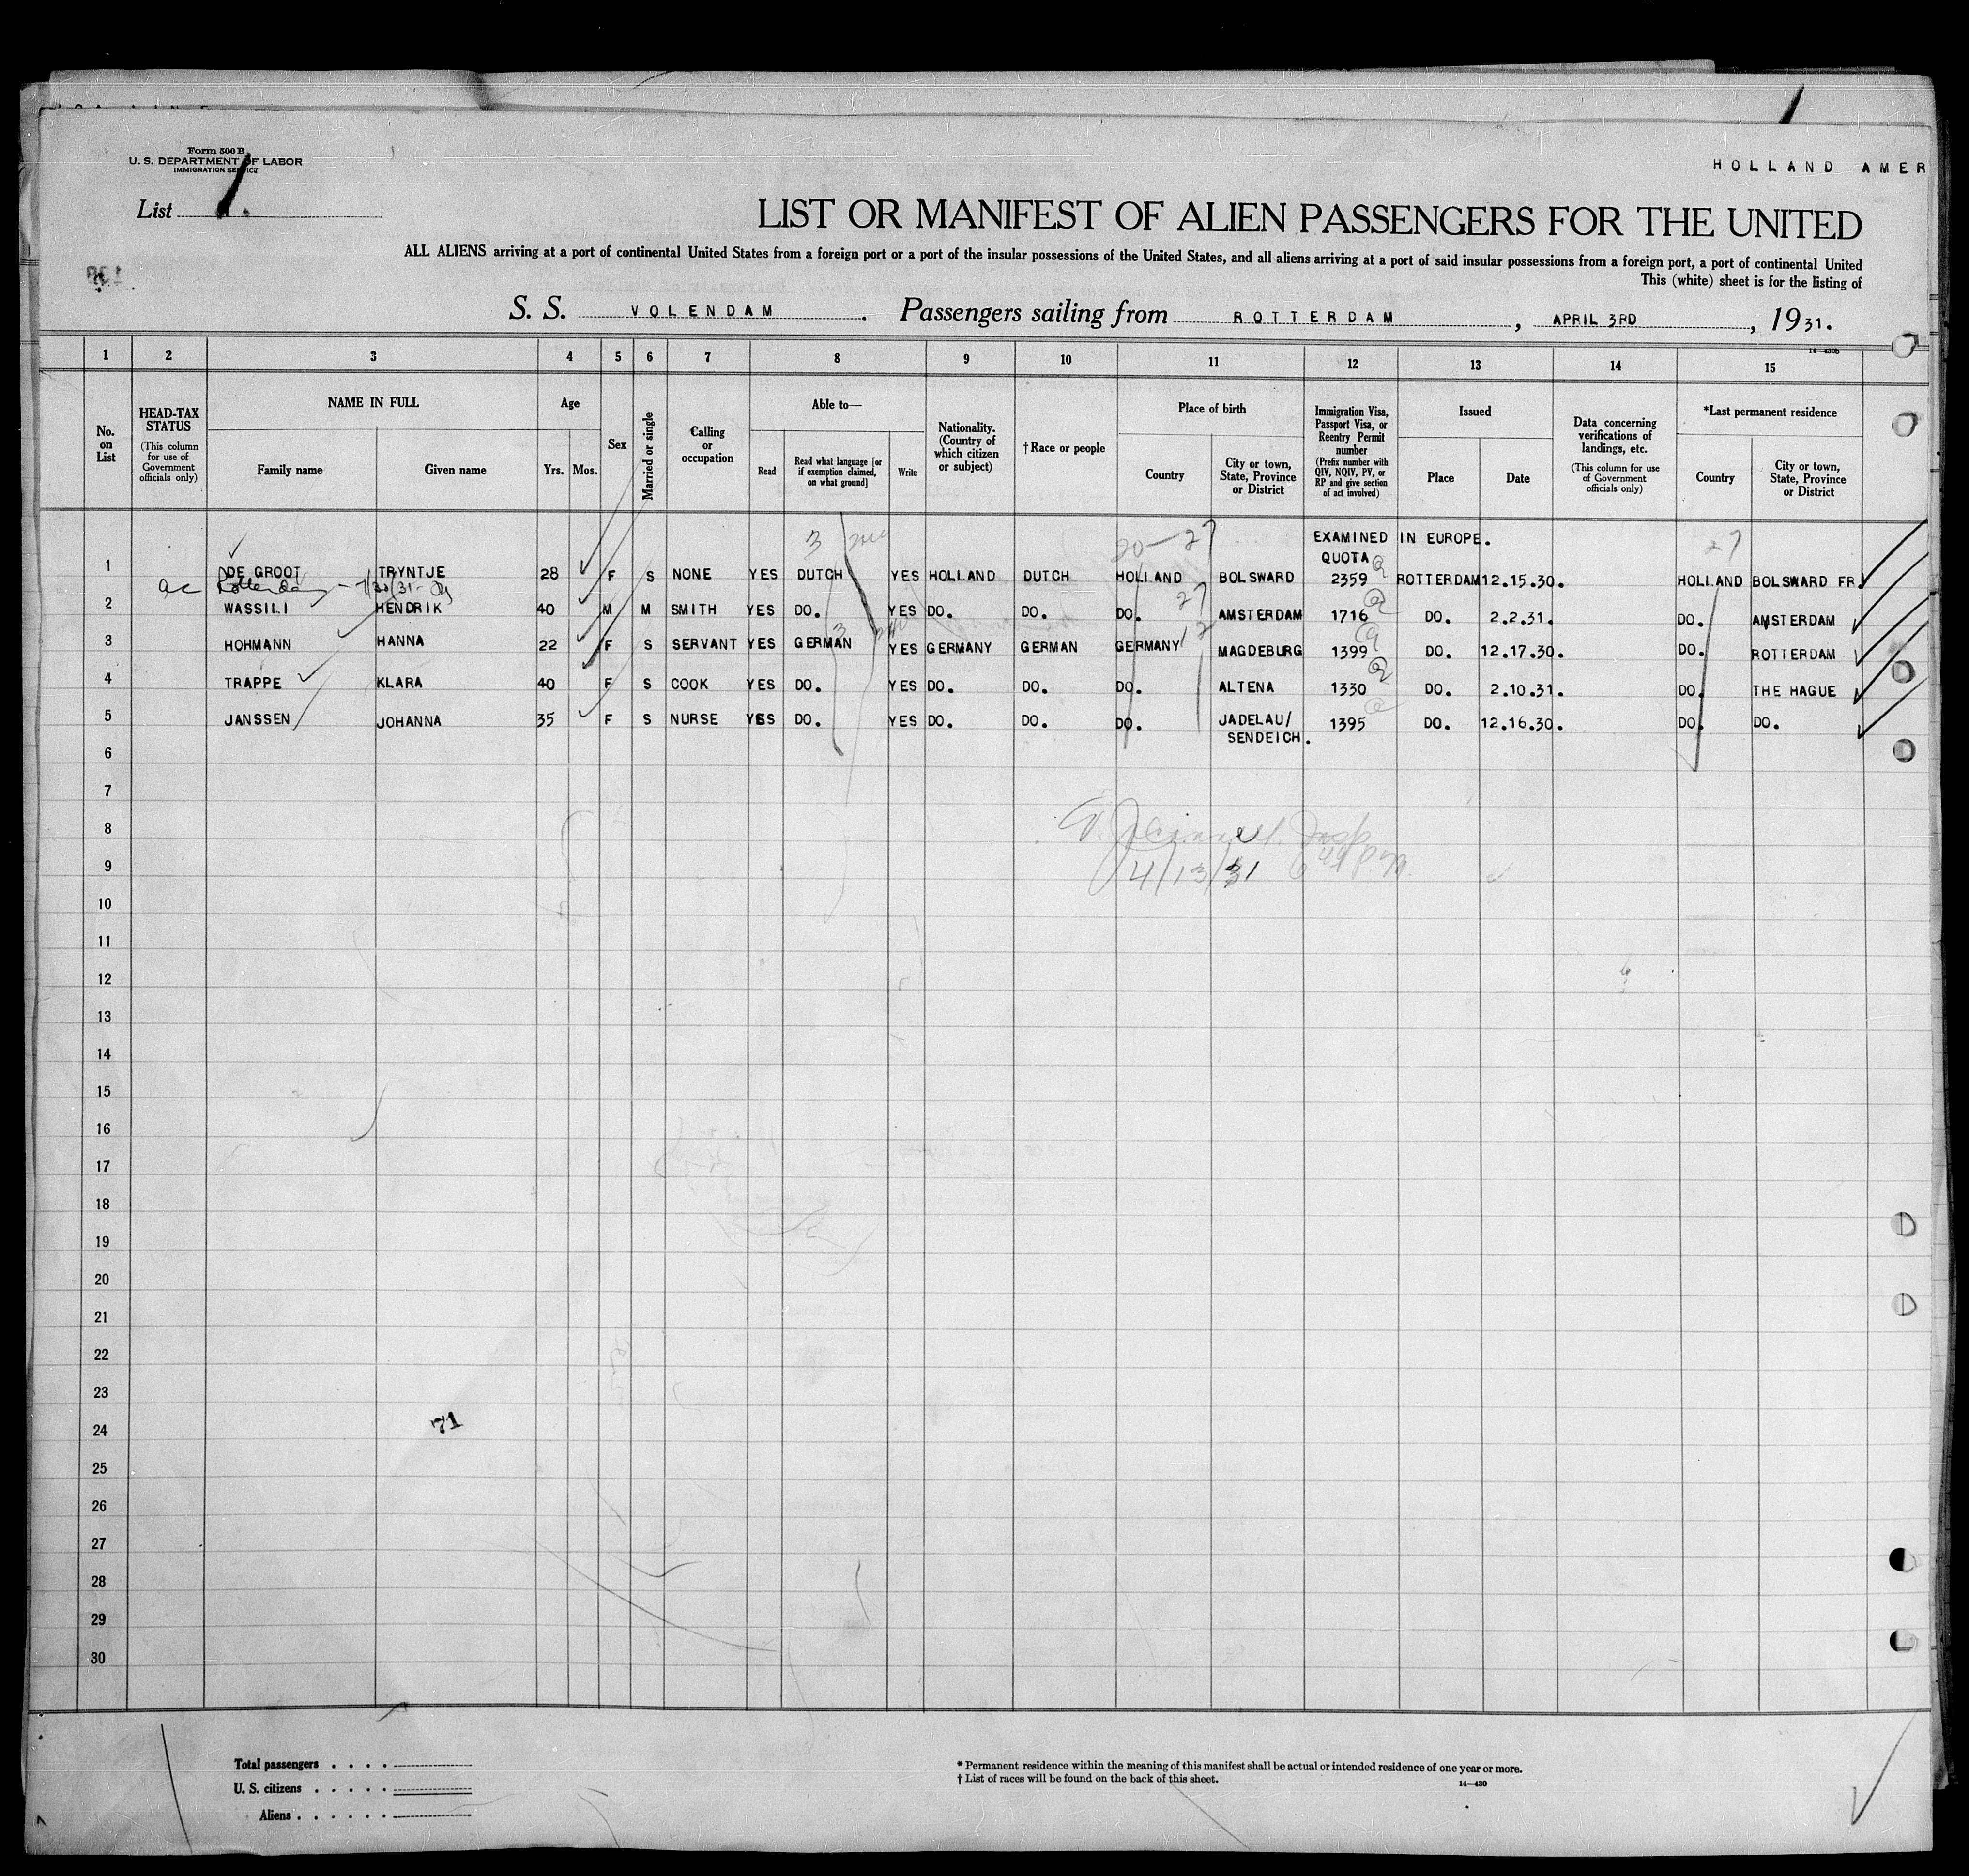 Form 500 B
U. S. DEPARTMENT OF LABOR
IMMIGRATION SERVICE
HOLLAND AMER
List 1.
LIST OR MANIFEST OF ALIEN PASSENGERS FOR THE UNITED
ALL ALIENS arriving at a port of continental United States from a foreign port or a port of the insular possessions of the United States, and all aliens arriving at a port of said insular possessions from a foreign port, a port of continental United
This (white) sheet is for the listing of
S. S. VOLENDAM. Passengers sailing from ROTTERDAM, APRIL 3RD, 1931.
14—430b
1 2 3 4 5 6 7 8 9 10 11 12 13 14 15
No. on List
HEAD-TAX STATUS (This column for use of Government officials only)
NAME IN FULL Family name Given name
Age Yrs. Mos.
Sex
Married or single
Calling or occupation
Able to— Read Read what language [or if exemption claimed, on what ground] Write
Nationality. (Country of which citizen or subject)
†Race or people
Place of birth Country City or town, State, Province or District
Immigration Visa, Passport Visa, or Reentry Permit number (Prefix number with QIV, NQIV, PV, or RP and give section of act involved)
Issued Place Date
Data concerning verifications of landings, etc. (This column for use of Government officials only)
*Last permanent residence Country City or town, State, Province or District
3 20-27 27
EXAMINED IN EUROPE.
QUOTA
1 DE GROOT TRYNTJE 28 F S NONE YES DUTCH YES HOLLAND DUTCH HOLLAND BOLSWARD 2359 ROTTERDAM 12.15.30. HOLLAND BOLSWARD FR.
Rotterdam
27
2 WASSILI HENDRIK 40 M M SMITH YES DO. YES DO. DO. DO. AMSTERDAM 1716 DO. 2.2.31. DO. AMSTERDAM
3 HOHMANN HANNA 22 F S SERVANT YES GERMAN YES GERMANY GERMAN GERMANY MAGDEBURG 1399 DO. 12.17.30. DO. ROTTERDAM
4 TRAPPE KLARA 40 F S COOK YES DO. YES DO. DO. DO. ALTENA 1330 DO. 2.10.31. DO. THE HAGUE
5 JANSSEN JOHANNA 35 F S NURSE YES DO. YES DO. DO. DO. JADELAU/ 1395 DO. 12.16.30. DO. DO.
SENDEICH.
6
7
8
9
4/13/31
10
11
12
13
14
15
16
17
18
19
20
21
22
23
24
71
25
26
27
28
29
30
Total passengers . . . .
U. S. citizens . . . . .
Aliens . . . . . .
* Permanent residence within the meaning of this manifest shall be actual or intended residence of one year or more.
† List of races will be found on the back of this sheet.
14—430